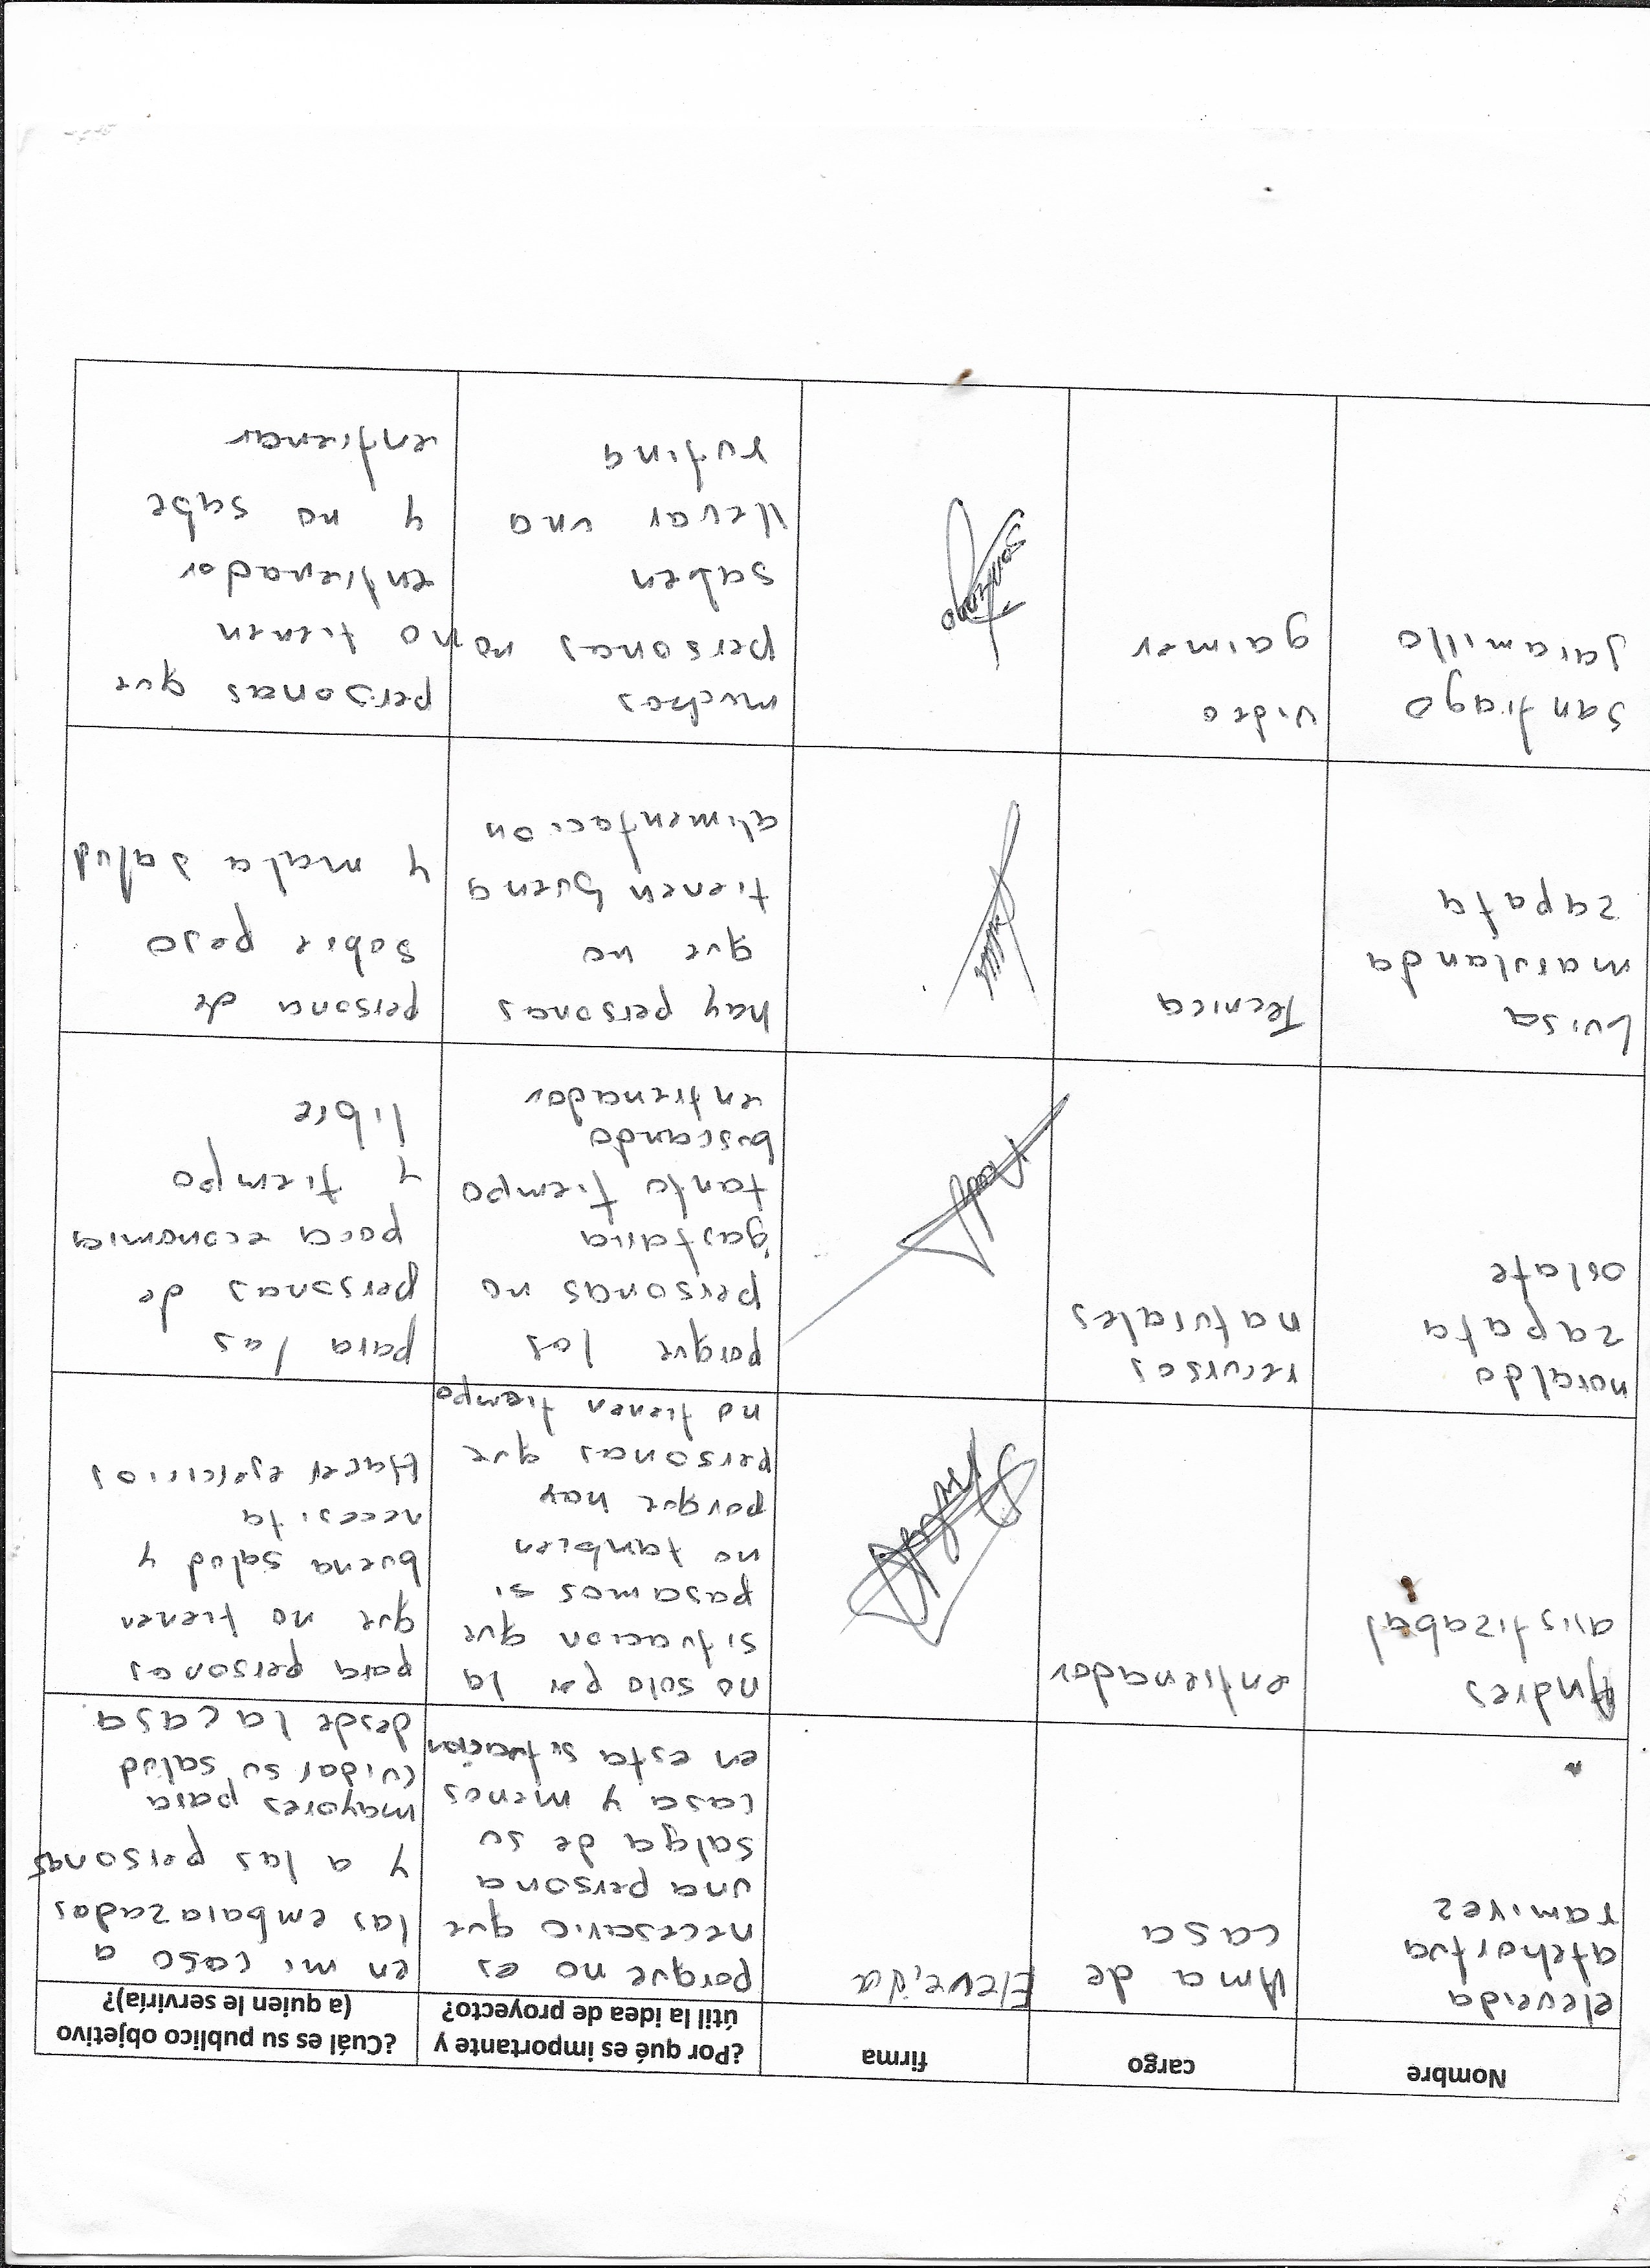 Nombre
cargo
firma
¿Por qué es importante y
útil la idea de proyecto?
¿Cuál es su publico objetivo
(a quien le serviría)?
eleveida
atehortua
ramirez
Ama de
casa
Eleveida
porque no es
necesario que
una persona
salga de su
casa y menos
en esta situacion
en mi caso a
las embarazadas
y a las personas
mayores para
cuidar su salud
desde la casa.
Andres
aristizabal
entrenador
no solo por la
situacion que
pasamos si
no tambien
porque hay
personas que
no tienen tiempo
para personas
que no tienen
buena salud y
necesita
Hacer ejercicios
noraldo
zapata
oslate
recursos
naturales
porque las
personas no
gastaria
tanto tiempo
buscando
entrenador
para las
personas de
poca economia
y tiempo
libre
Luisa
marulanda
zapata
Tecnica
hay personas
que no
tienen buena
alimentacion
persona de
sobre peso
y mala salud
santiago
jaramillo
video
gaimer
santiago
muchas
personas no
saben
llevar una
rutina
personas que
no tienen
entrenador
y no sabe
entrenar